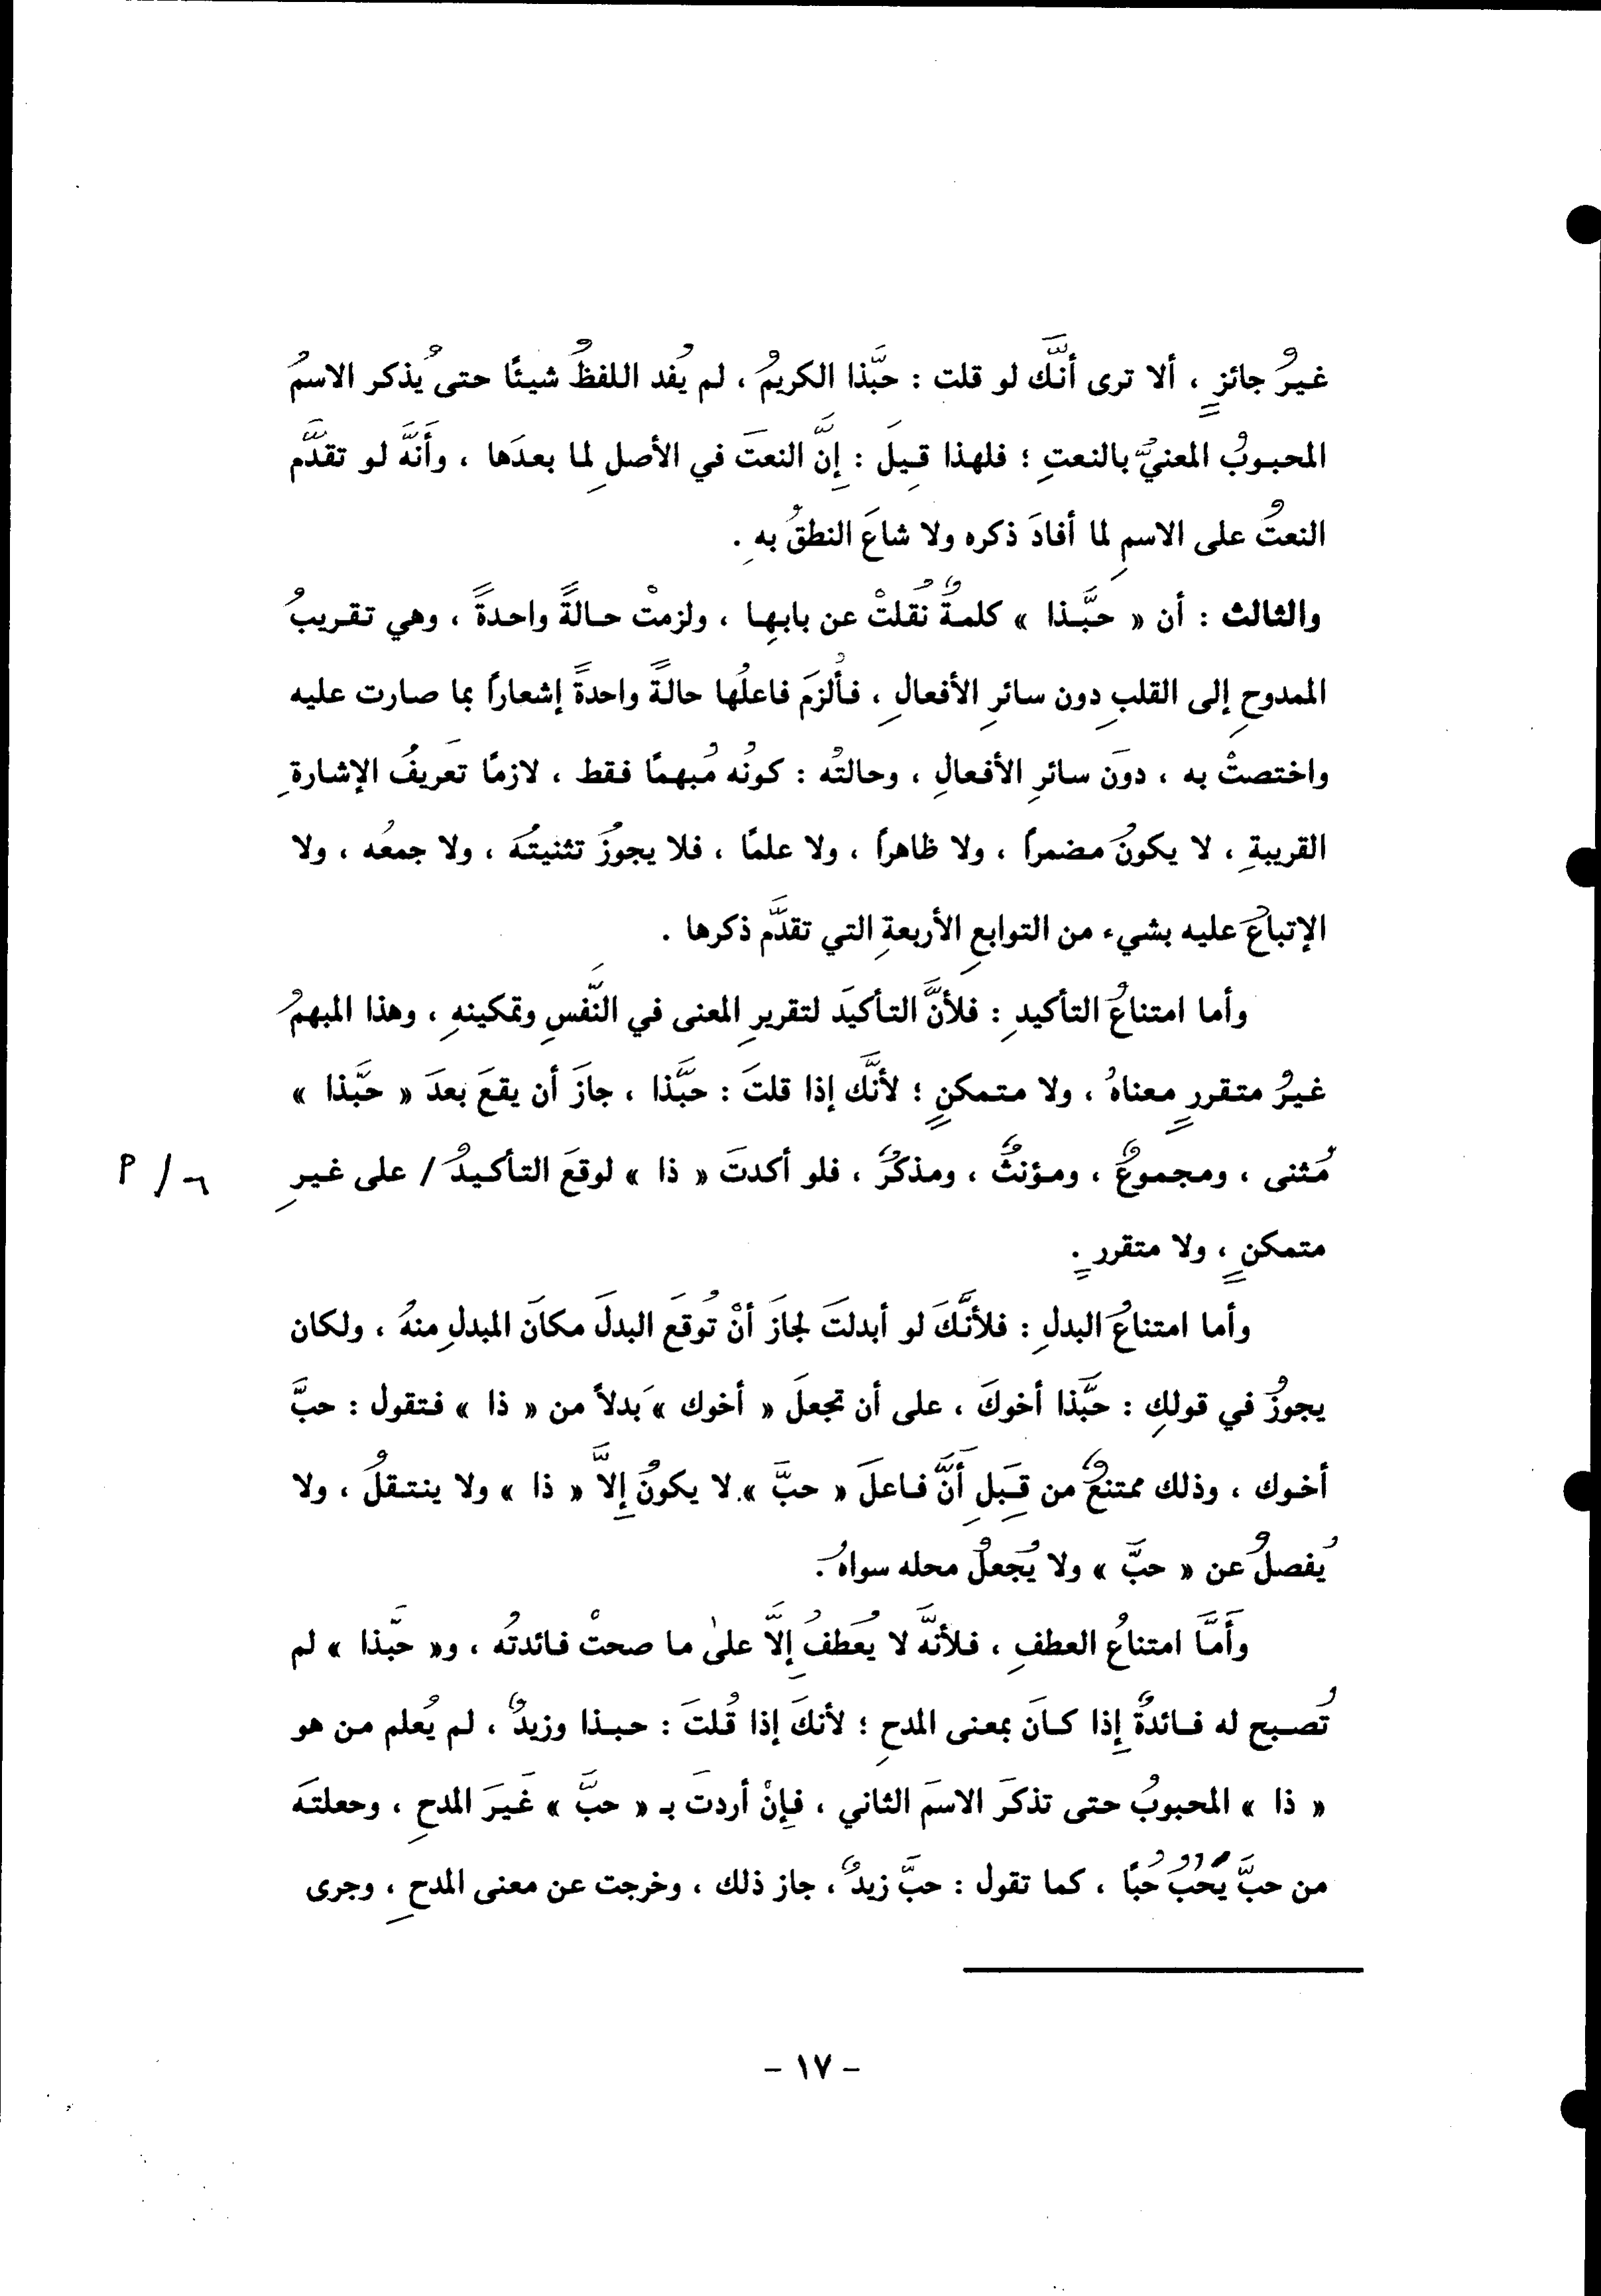 غيرُ جائزٍ ، ألا ترى أنَّك لو قلت : حبَّذا الكريمُ ، لم يُفد اللفظُ شيئًا حتى يُذكر الاسمُ
المحبوبُ المعنيُّ بالنعتِ ؛ فلهذا قِيلَ : إنَّ النعتَ في الأصلِ لما بعدَها ، وأَنَّه لو تقدَّم
النعتُ على الاسمِ لما أفادَ ذكره ولا شاعَ النطقُ بهِ .
والثالث : أن « حبَّذا » كلمةٌ نُقلتْ عن بابِها ، ولزمتْ حالةً واحدةً ، وهي تقريبُ
الممدوحِ إلى القلبِ دون سائرِ الأفعالِ ، فأُلزمَ فاعلُها حالةً واحدةً إشعاراً بما صارت عليه
واختصتْ به ، دونَ سائرِ الأفعالِ ، وحالتُه : كونُه مُبهمًا فقط ، لازمًا تَعريفُ الإشارةِ
القريبةِ ، لا يكونُ مضمراً ، ولا ظاهراً ، ولا علمًا ، فلا يجوزُ تثنيتُه ، ولا جمعُه ، ولا
الإتباعُ عليه بشيء من التوابعِ الأربعةِ التي تقدَّم ذكرها .
وأما امتناعُ التأكيدِ : فلأنَّ التأكيدَ لتقريرِ المعنى في النَّفسِ وتمكينهِ ، وهذا المبهمُ
غيرُ متقررٍ معناهُ ، ولا متمكنٍ ؛ لأنَّك إذا قلتَ : حبَّذا ، جازَ أن يقعَ بعدَ « حبَّذا »
مُثنى ، ومجموعٌ ، ومؤنثٌ ، ومذكرٌ ، فلو أكدتَ « ذا » لوقعَ التأكيدُ / على غيرِ
٦ / أ
متمكنٍ ، ولا متقررٍ .
وأما امتناعُ البدلِ : فلأنَّكَ لو أبدلتَ لجازَ أنْ تُوقعَ البدلَ مكانَ المبدلِ منهُ ، ولكان
يجوزُ في قولكِ : حبَّذا أخوكَ ، على أن تجعلَ « أخوك » بَدلاً من « ذا » فتقول : حبَّ
أخوك ، وذلك ممتنعٌ من قِبَلِ أَنَّ فاعلَ « حبَّ » لا يكونُ إلاَّ « ذا » ولا ينتقلُ ، ولا
يُفصلُ عن « حبَّ » ولا يُجعلُ محله سواهُ .
وأَمَّا امتناعُ العطفِ ، فلأنَّه لا يُعطفُ إلاَّ علىٰ ما صحتْ فائدتُه ، و« حبَّذا » لم
تُصبح له فائدةٌ إذا كانَ بمعنى المدحِ ؛ لأنكَ إذا قُلتَ : حبذا وزيدٌ ، لم يُعلم من هو
« ذا » المحبوبُ حتى تذكرَ الاسمَ الثاني ، فإنْ أردتَ بـ « حبَّ » غَيرَ المدحِ ، وجعلتَه
من حبَّ يُحُبُّ حُبًا ، كما تقول : حبَّ زيدٌ ، جاز ذلك ، وخرجت عن معنى المدحِ ، وجرى
- ١٧ -